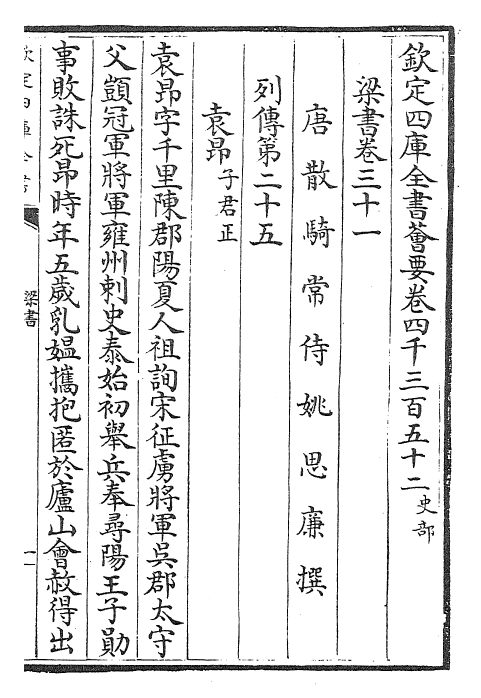 欽定四庫全書薈要卷四千三百五十二史部
梁書卷三十一
唐散騎常侍姚思廉撰
列傳第二十五
袁昂子君正
袁昂字千里陳郡陽夏人祖詢宋征虜將軍吳郡太守
父顗冠軍將軍雍州刺史泰始初舉兵奉尋陽王子勛
事敗誅死昂時年五歲乳媪攜抱匿於廬山會赦得出
欽定四庫全書
梁書
一